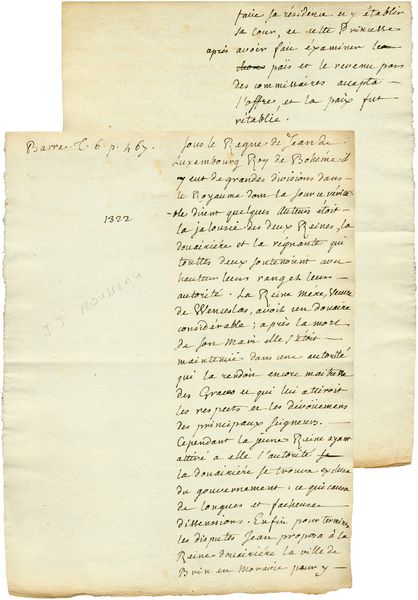 faire sa résidence et y établir
sa cour, et cette Princesse
après avoir fait éxaminer le
païs et le revenu par
des commissaires accepta
l'offre, et la paix fut
rétablie.
Barre. T. 6. p. 467.
1322
J. J. Rousseau
Sous le Regne de Jean de
Luxembourg Roy de Bohême il
y eut de grandes divisions dans
le Royaume dont la source vérita-
ble dirent quelques Auteurs étoit
la jalousie des deux Reines, la
douairiére et la régnante qui
touttes deux soutenoient avec
hauteur leurs rang et leurs
autorité. La Reine mére, Veuve
de Wenceslas, avoit un douaire
considérable; après la mort
de son Mari elle s'étoit
maintenüe dans une autorité
qui la rendoit encore maitresse
des Graces et qui lui attiroit
les respects et les dévoüemens
des principaux Seigneurs.
Cependant la jeune Reine ayant
attiré a elle l'autorité
la douairiére se trouva excluse
du gouvernement: ce qui causa
de longues et facheuses
dissensions. Enfin pour terminer
les disputes Jean proposa à la
Reine douairiére la ville de
Brin en Moravie pour y